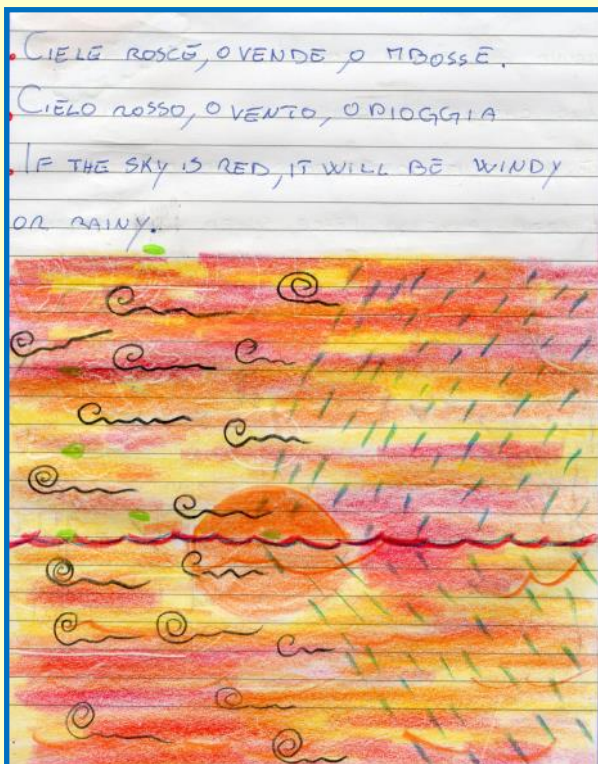 CIELE ROSCE, O VENDE, O MBOSSE.
CIELO ROSSO, O VENTO, O PIOGGIA
IF THE SKY IS RED, IT WILL BE WINDY
OR RAINY.